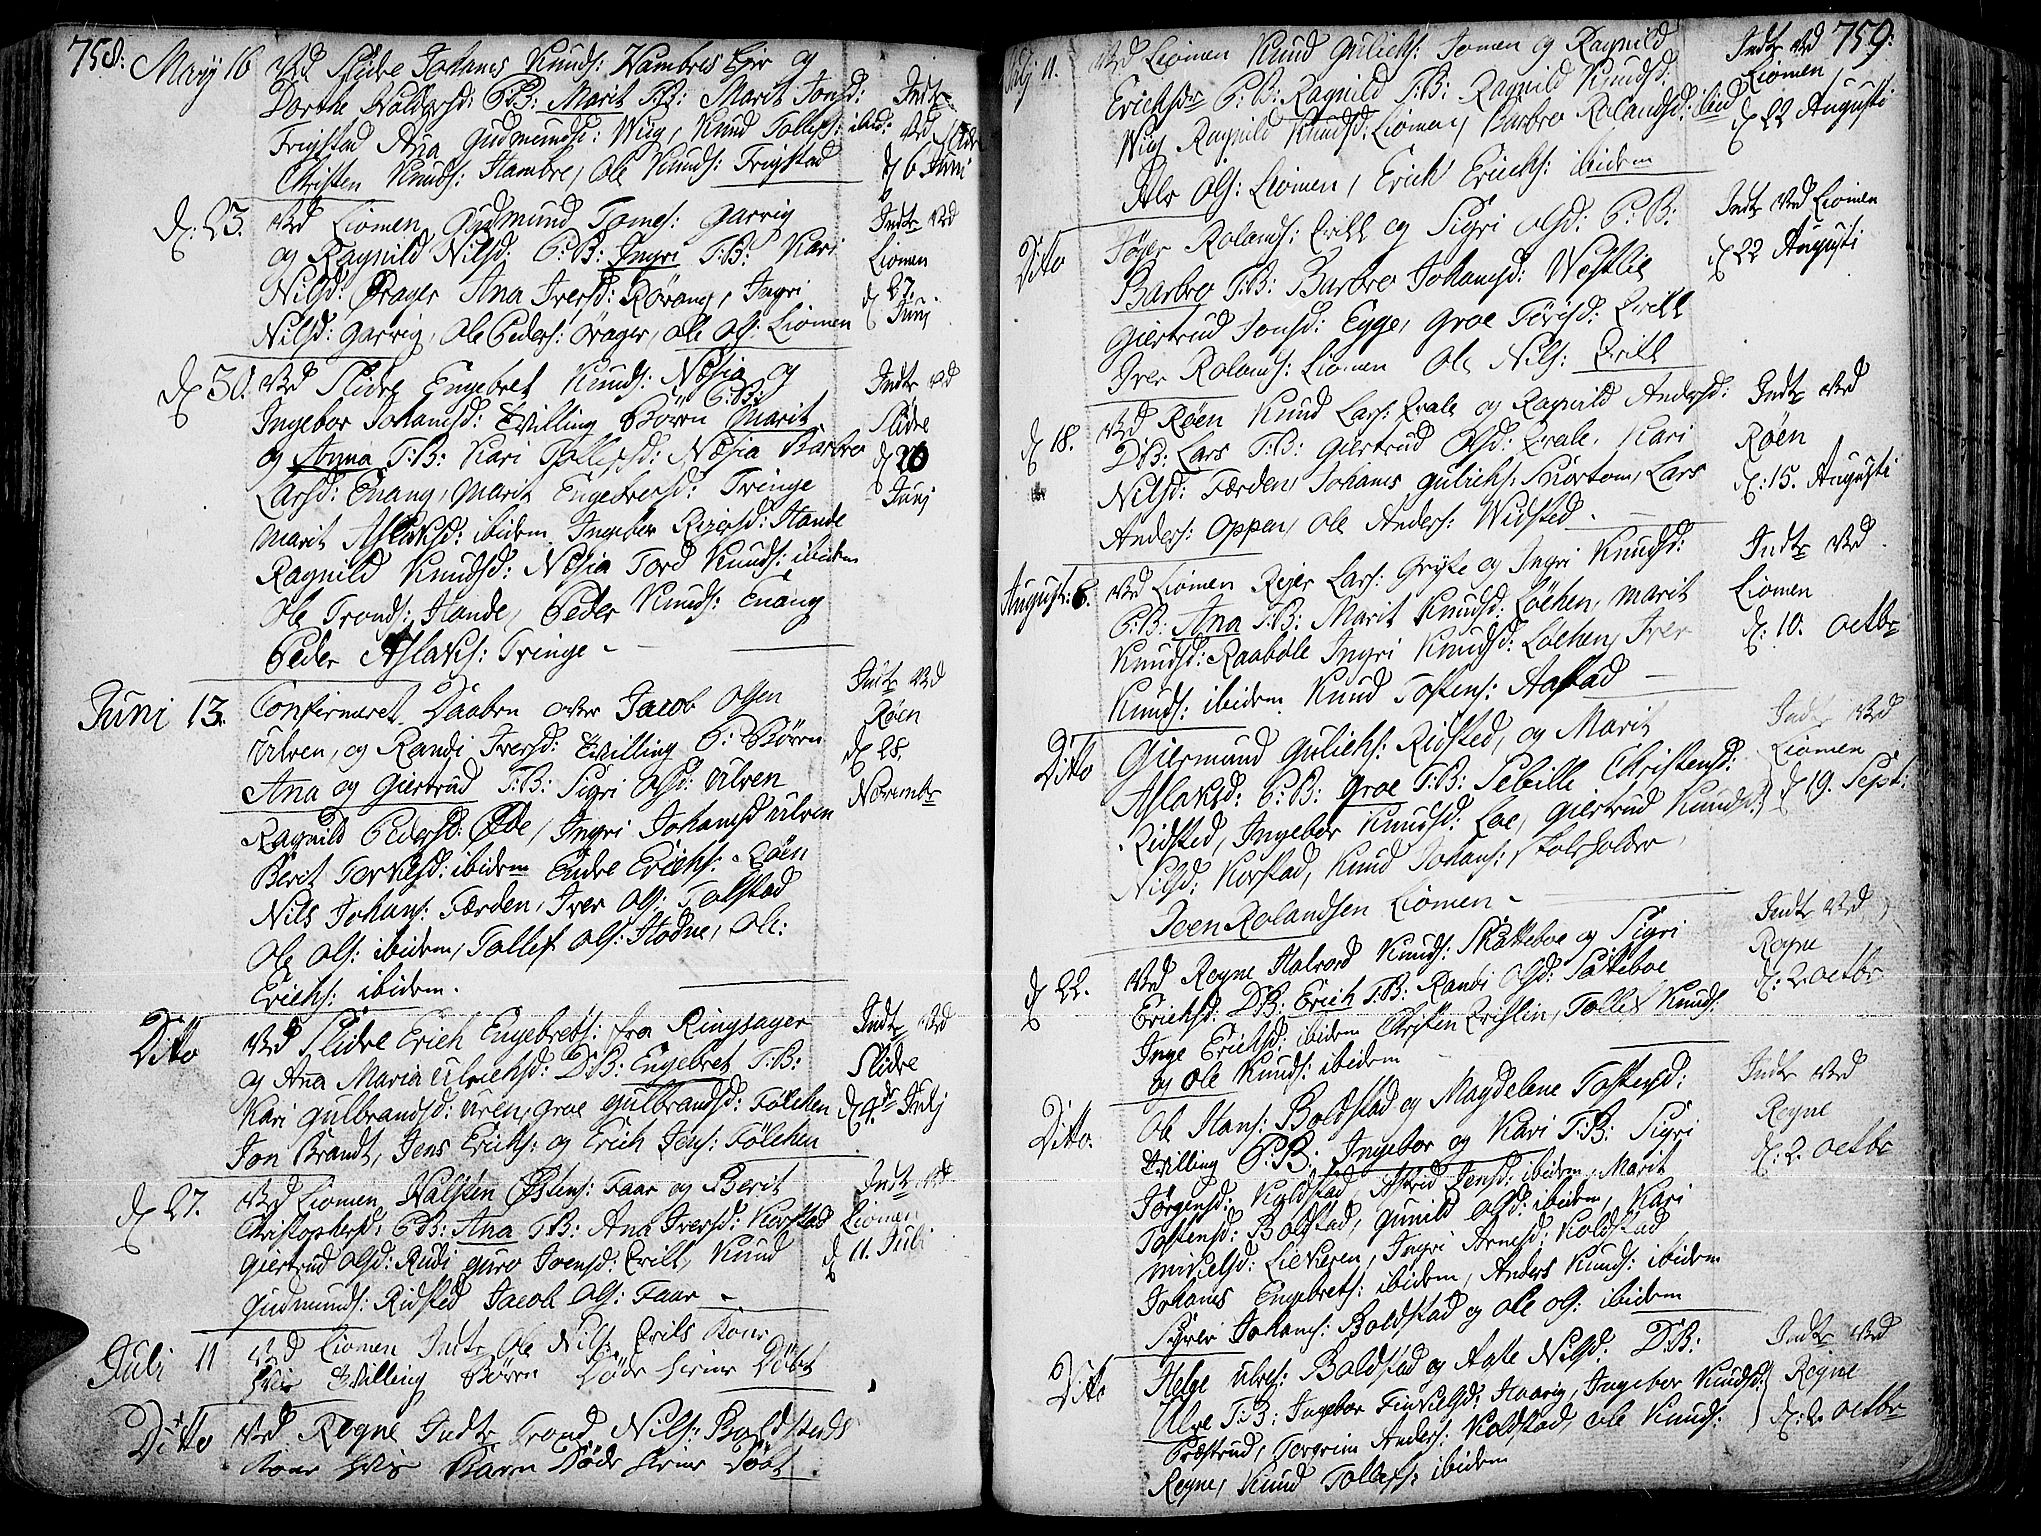 758:
Maÿ 16 Ved Slidre Johanes Knuds: Hambres Eir og
Dorthe Haldorsd: P:B: Marit T:B: Marit Jonsd:
Frigstad Ana Gudmundsd: Wiig, Knud Tollefs: ibid:
Christen Knuds: Hambre, Ole Knuds: Frigstad
Indtr
Ved Slidre
d 6 Juni
d: 23. Ved Liomen Gudmund Tomes: Garvig
og Ragnild Nilsd: P:B: Ingri T:B: Kari
Nilsd: Qvager Ana Iversd: Røvang, Ingri
Nilsd: Garvig, Ole Peders: Qvager, Ole Ols: Liomen
Indtr Ved
Liomen
d 27.
Junj
d 30. Ved Slidre Engebret Knuds: Næsia og
Ingebor Johansd: Tvilling Børn P:B: Marit
og Anna T:B: Kari Tollefsd: Næsia Barbro
Larsd: Enang, Marit Engebretsd: Tvinge
Marit Aslaksd: ibidem Ingebor Hande
Ragnild Knudsd: Næsia Tord Knuds: ibidem
Ole Tronds: Hande, Peder Knuds: Enang
Peder Aslaks: Tvinge -
Indtr Ved
Slidre
d 20
Junj
Juni 13. Confirmeret Daaben over Jacob Olsen
Ulven, og Randi Iversd: Tvilling P: Børn
Ana og Giertrud T:B: Sigri Olsd: Ulven
Ragnild Pedersd: Øde, Ingri Johansd Ulven
Berit Torkelsd: ibidem Endre Erichs: Røen
Nils Johans: Færden, Iver Ols: Tolstad
Ole Ols: ibidem, Tollef Ols: Hodne, Ole:
Erichs: ibidem.
Indtr Ved
Røen
d 28.
Novembr
Ditto Ved Slidre Erich Engebrets: fra Ringsager
og Ana Maria Ulrichsd: D:B: Engebret T:B:
Kari Gulbrandsd: Uren, Groe Gulbrandsd: Følchen
Jon Brandt, Jens Erichs: og Erich Jens: Følchen
Indtr Ved
Slidre
d 4de Julj
d 27. Ved Liomen Halsten Østens: Faar og Berit
Christophersd: P:B: Ana T:B: Ana Iversd: Korstad
Giertrud Olsd: Rudi Guro Ivensd: Qvill, Knud
Gudmunds: Ridsted Jacob Ols: Faar -
Indtr Ved
Liomen
d 11. Juli
Juli 11 Ved Liomen Indtr Ole Nils: Qvils Kone
hvis Tvilling Børn Døde hiem Døbt
Ditto Ved Rogne Indtr Trond Nils: Boldsteds
Kone hvis Barn Døde hiem Døbt.
759:
Julj 11. Ved Liomen Knud Gulichs: Jomen og Ragnild
Erichsdr P:B: Ragnild T:B: Ragnild Knudsd:
Wiig Ragnild Knudsd: Liomen, Barbro Rolandsd: ibid
Alv Ols: Liomen, Erich Erichs: ibidem
Indtr Ved
Liomen
d 22 Augusti
Ditto Jøger Rolands: Qvill og Sigri Olsd: P:B:
Barbro T:B: Barbro Johansd: Westlie
Giertrud Jonsd: Egge, Groe Qvill
Iver Rolands: Liomen Ole Nils: Qvill
Indtr Ved Liomen
d 22 Augusti
d 18. Ved Røen Knud Lars: Qvale og Ragnild Andersd:
D:B: Lars T:B: Giertrud Olsd: Qvale, Kari
Nilsd: Færden, Johanes Gulichs: Skiørtom, Lars
Anders: Oppen, Ole Anders: Widsted -
Indtr Ved
Røen
d: 15. Augusti
August: 6. Ved Liomen Rejer Lars: Gryte og Ingri Knudsd:
P:B: Ana T:B: Marit Knudsd: Løchen, Marit
Knudsd: Raabole Ingri Knudsd: Løchen, Iver
Knuds: ibidem Knud Tostens: Aastad
Indtr Ved
Liomen
d: 10. Octbr
Ditto Giermund Gulichs: Ridsted, og Marit
Aslaksd: P:B: Groe T:B: Sebille Christensd:
Ridsted, Ingebor Knudsd: Loe, Giertrud Knudsd:
Nilsd: Korstad, Knud Johans: Skoleholder,
Joen Rolandsen Liomen -
Indtr Ved
Liomen
d 19. Sept:
d 22. Ved Rogne Halvord Knuds: Skatteboe og Sigri
Erichsd: D:B: Erich T:B: Randi Olsd: Satteboe
Inge Erichsd: ibidem Christen Qvislin, Tollef Knuds:
og Ole Knuds: ibidem
Indtr Ved
Rogne
d: 2. Octbr
Ditto. Ole Hans: Boldstad og Magdelene Tostensd:
Tvilling P:B. Ingebor og Kari T:B: Sigri
Jørgensd: Koldstad, Astrid Jensd: ibidem, Marit
Tostensd: Boldstad, Gunild Olsd: ibidem, Kari
Mikelsd: Liekeren, Ingri Arnesd: Koldstad
Johanes Engebrets: ibidem, Anders Knuds: ibidem
Syver Johans: Boldstad og Ole Ols: ibidem
Indtr Ved
Rogne
d: 2. Octbr
Ditto Helge Ulves: Boldstad og Aaste Nilsd: D:B:
Ulve T:B: Ingebor Finkelsd: Haavig, Ingebor Knudsd:
Præstrud, Torgrim Anders: Koldstad, Ole Knuds:
Rogne, Knud Tollefs: ibidem
Indtr Ved
Rogne
d: 2. Octbr